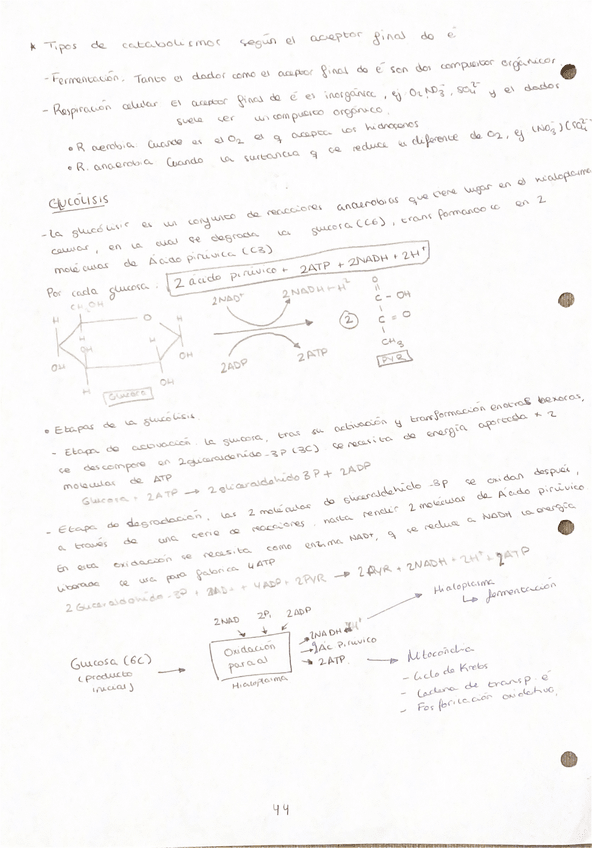 * Tipos de catabolismos según el aceptor final de é
- Fermentación. Tanto el dador como el aceptor final de é son dos compuestos orgánicos
- Respiración celular el aceptor final de é es inorgánico, ej O2, NO3-, SO4 2- y el dador
suele ser un compuesto orgánico.
• R. aerobia. Cuando es el O2 es q acepta los hidrógenos
• R. anaerobia Cuando la sustancia q se reduce es diferente de O2, ej (NO3-) (SO4 2-
GLUCÓLISIS
- La glucólisis es un conjunto de reacciones anaerobias que tiene lugar en el hialoplasma
celular, en la cual se degrada la glucosa (C6), transformandose en 2
moléculas de Ácido pirúvico (C3)
Por cada glucosa: 2 acido pirúvico + 2ATP + 2NADH + 2H+
CH2OH
H O H
H
OH OH
OH
H OH
Glucosa
2NAD+ 2NADH+H+
2ADP 2ATP
2
O
C - OH
C = O
CH3
PYR
• Etapas de la glucólisis.
- Etapa de activación. la glucosa, tras su activación y transformación en otras hexosas,
se descompone en 2 gliceraldehido-3P (3C) se necesita de energía aportada x 2
moléculas de ATP
Glucosa + 2ATP → 2 gliceraldehido 3P + 2ADP
- Etapa de degradación, las 2 moléculas de gliceraldehido-3P se oxidan después,
a través de una serie de reacciones, hasta rendir 2 moléculas de Ácido pirúvico
En esta oxidación se necesita como enzima NAD+, q se reduce a NADH la energía
liberada se usa para fabricar 4ATP
2 Gliceraldehido-3P + 4ADP + 2PVR → 2 PYR + 2NADH + 2H+ + 2ATP
2NAD 2Pi 2ADP
Glucosa (6C)
(Producto
inicial)
Oxidación
parcial
Hialoplasma
2NADH
2 Ác pirúvico
2 ATP
Hialoplasma
↳ fermentación
Mitocondria
- Ciclo de Krebs
- Cadena de transp. é
- Fosforilación oxidativa.
44